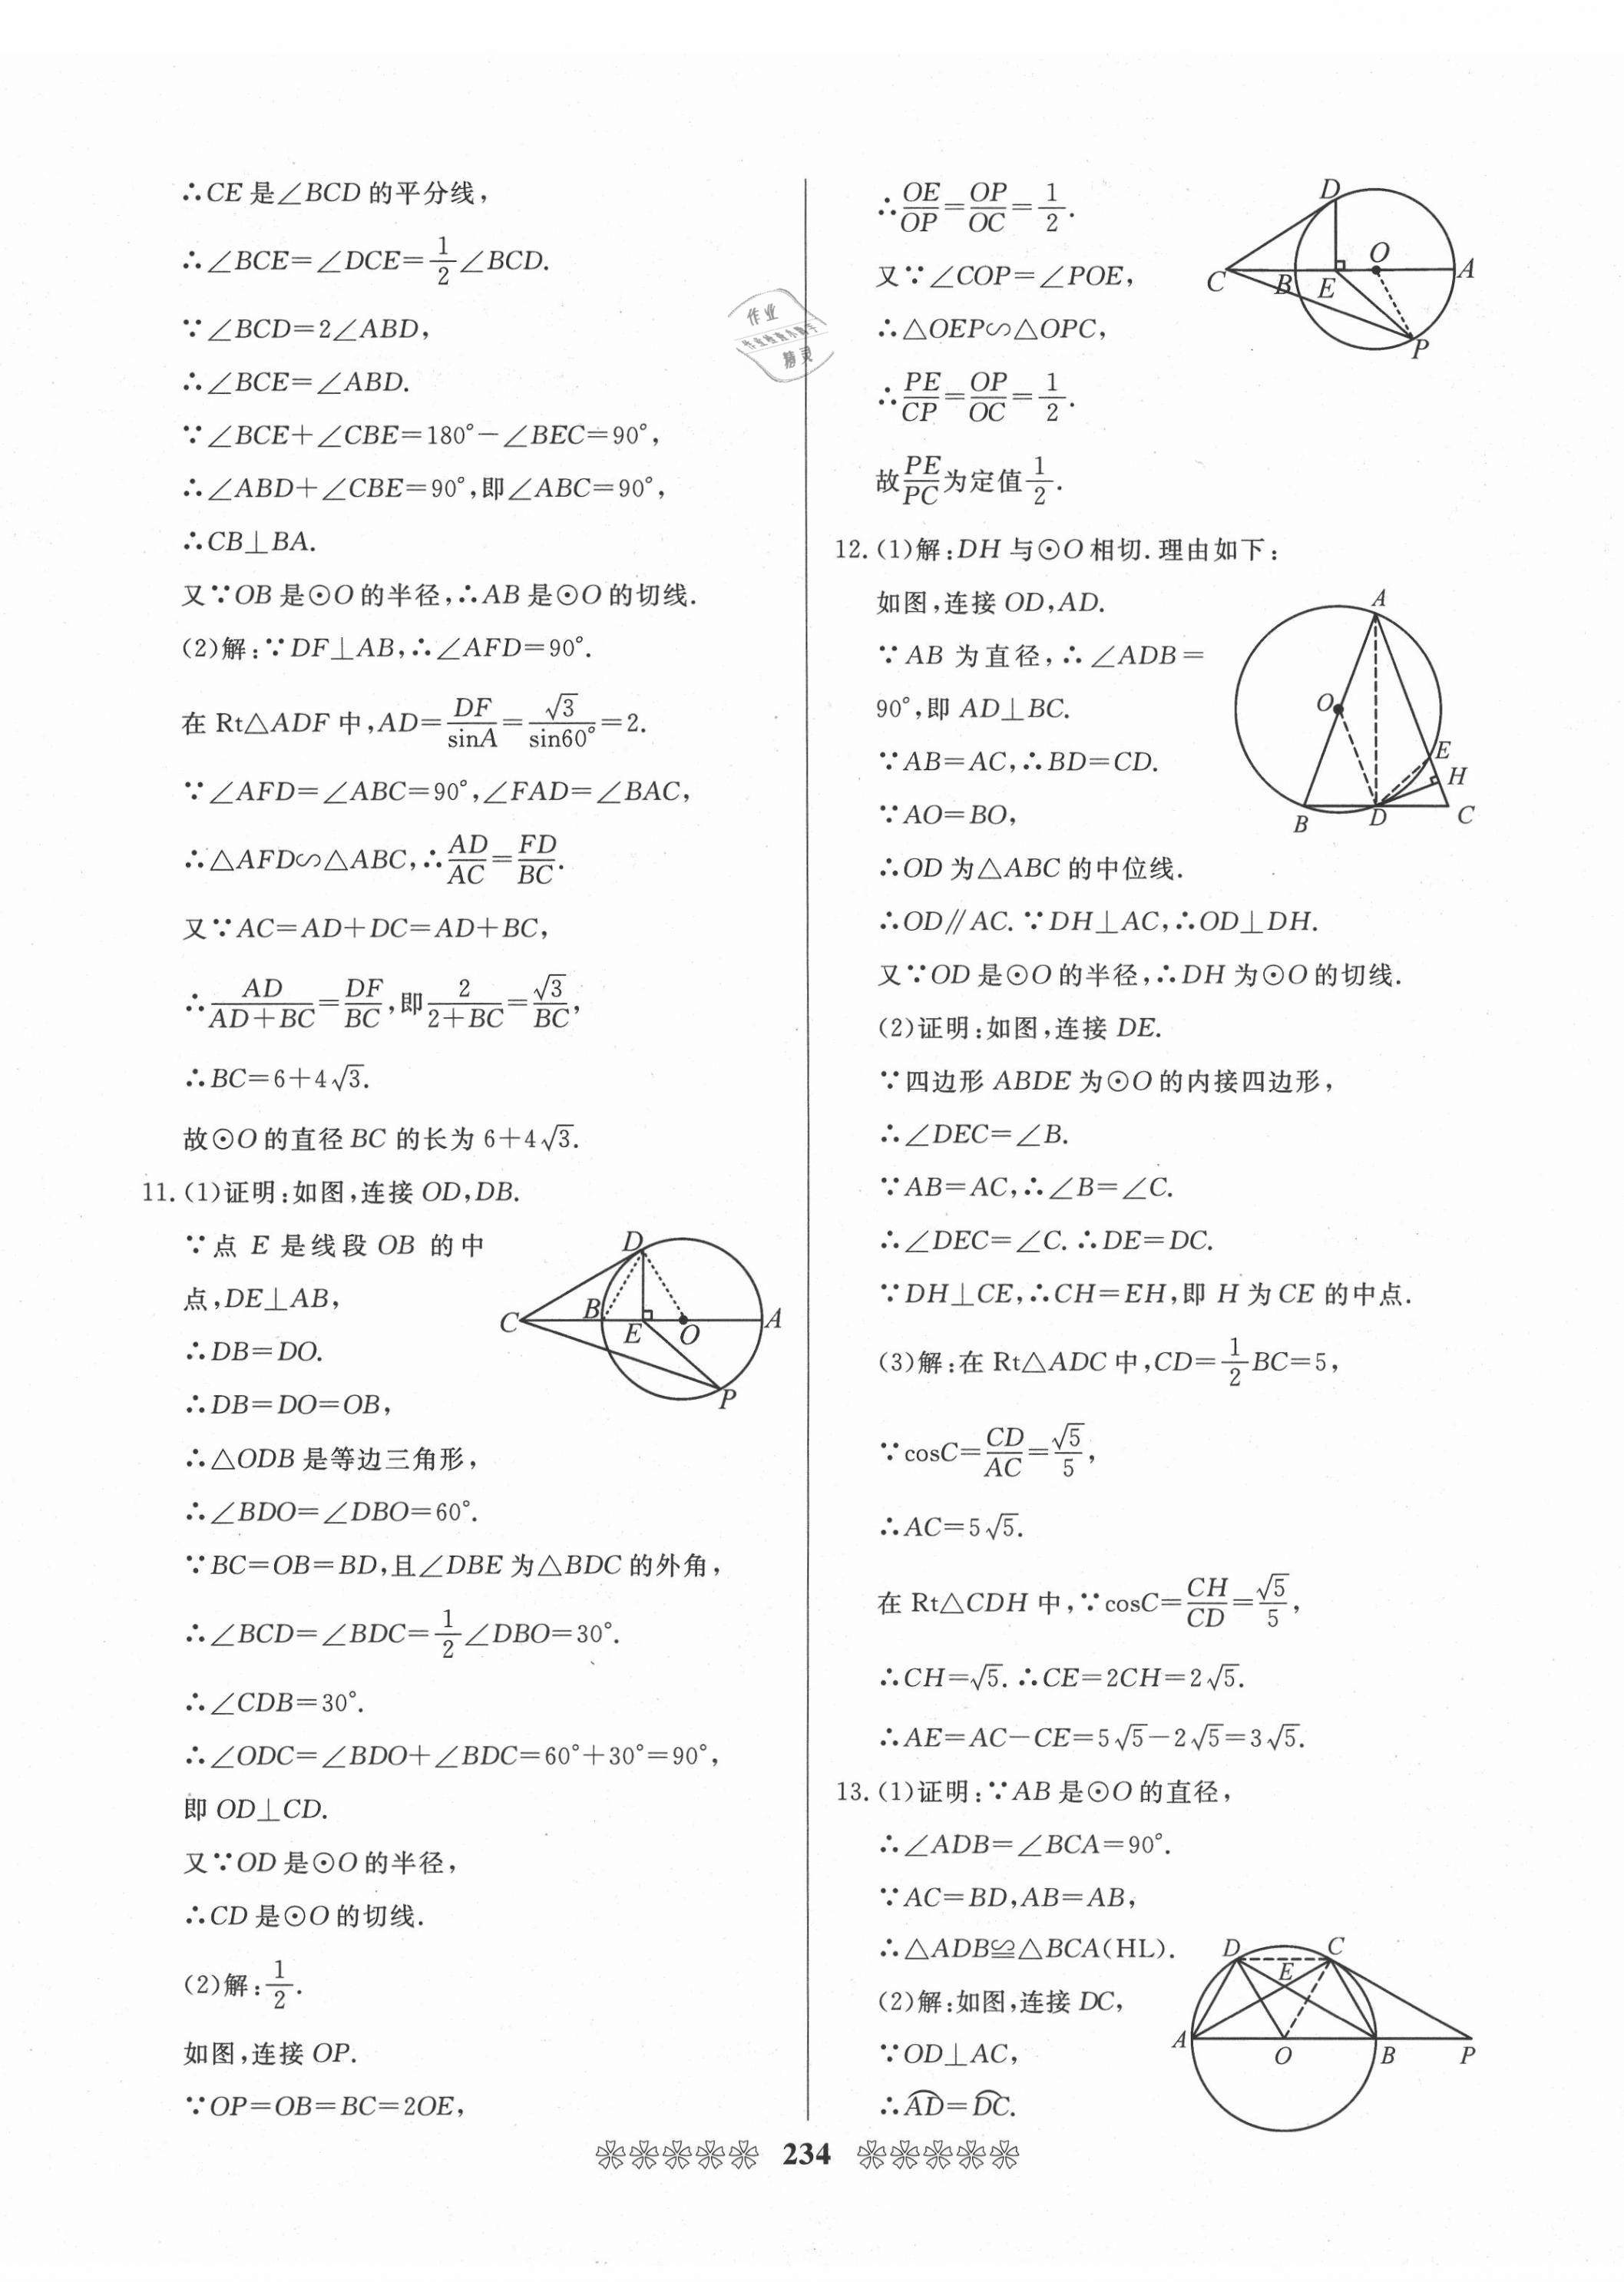 ∴CE是∠BCD的平分线，
∴∠BCE=∠DCE=1/2∠BCD.
∵∠BCD=2∠ABD，
∴∠BCE=∠ABD.
∵∠BCE+∠CBE=180°−∠BEC=90°，
∴∠ABD+∠CBE=90°，即∠ABC=90°，
∴CB⊥BA.
又∵OB是⊙O的半径，∴AB是⊙O的切线.
(2)解：∵DF⊥AB，∴∠AFD=90°.
在Rt△ADF中，AD=DF/sinA=√3/sin60°=2.
∵∠AFD=∠ABC=90°，∠FAD=∠BAC，
∴△AFD∽△ABC，∴AD/AC=FD/BC.
又∵AC=AD+DC=AD+BC，
∴AD/(AD+BC)=DF/BC，即2/(2+BC)=√3/BC，
∴BC=6+4√3.
故⊙O的直径BC的长为6+4√3.
11.(1)证明：如图，连接OD，DB.
∵点E是线段OB的中
点，DE⊥AB，
∴DB=DO.
∴DB=DO=OB，
∴△ODB是等边三角形，
∴∠BDO=∠DBO=60°.
∵BC=OB=BD，且∠DBE为△BDC的外角，
∴∠BCD=∠BDC=1/2∠DBO=30°.
∴∠CDB=30°.
∴∠ODC=∠BDO+∠BDC=60°+30°=90°，
即OD⊥CD.
又∵OD是⊙O的半径，
∴CD是⊙O的切线.
(2)解：1/2.
如图，连接OP.
∵OP=OB=BC=2OE，
D
C
B
E
O
A
P
∴OE/OP=OP/OC=1/2.
又∵∠COP=∠POE，
∴△OEP∽△OPC，
∴PE/CP=OP/OC=1/2.
故PE/PC为定值1/2.
D
C
B
E
O
A
P
12.(1)解：DH与⊙O相切.理由如下：
如图，连接OD，AD.
∵AB为直径，∴∠ADB=
90°，即AD⊥BC.
∵AB=AC，∴BD=CD.
∵AO=BO，
∴OD为△ABC的中位线.
∴OD∥AC.∵DH⊥AC，∴OD⊥DH.
又∵OD是⊙O的半径，∴DH为⊙O的切线.
(2)证明：如图，连接DE.
∵四边形ABDE为⊙O的内接四边形，
∴∠DEC=∠B.
∵AB=AC，∴∠B=∠C.
∴∠DEC=∠C.∴DE=DC.
∵DH⊥CE，∴CH=EH，即H为CE的中点.
(3)解：在Rt△ADC中，CD=1/2BC=5，
∵cosC=CD/AC=√5/5，
∴AC=5√5.
在Rt△CDH中，∵cosC=CH/CD=√5/5，
∴CH=√5.∴CE=2CH=2√5.
∴AE=AC−CE=5√5−2√5=3√5.
A
O
E
H
B
D
C
13.(1)证明：∵AB是⊙O的直径，
∴∠ADB=∠BCA=90°.
∵AC=BD，AB=AB，
∴△ADB≌△BCA(HL).
(2)解：如图，连接DC，
∵OD⊥AC，
∴A͡D=D͡C.
D
C
E
A
O
B
P
234
作业
作业检查小助手
精灵